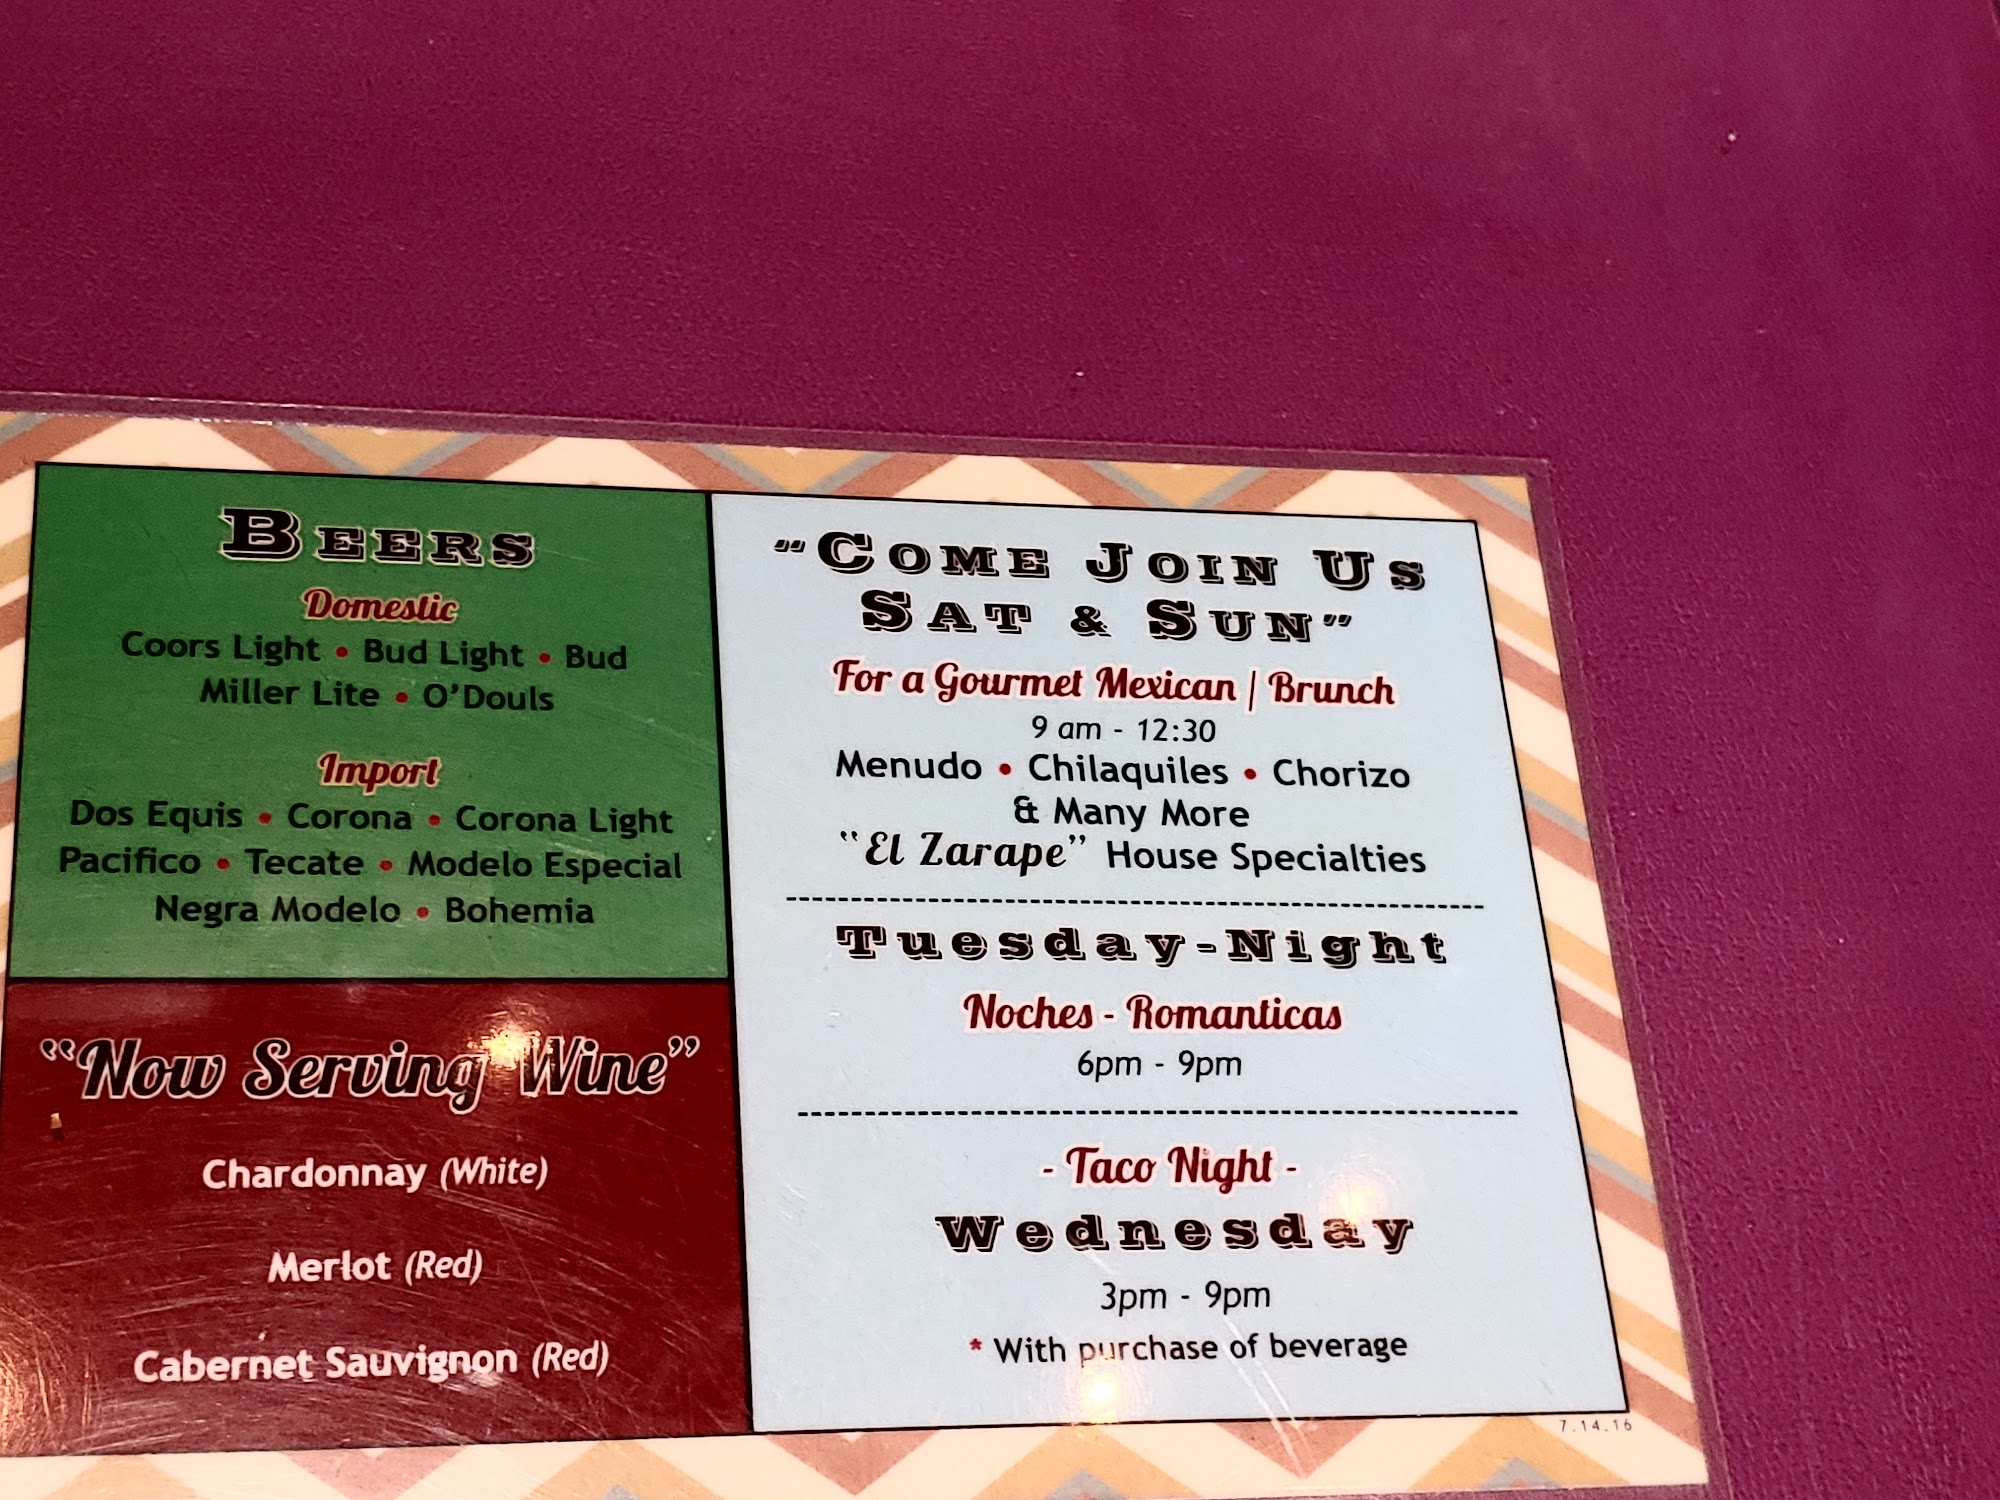 BEERS
Domestic
Coors Light • Bud Light • Bud
Miller Lite • O'Douls
Import
Dos Equis • Corona • Corona Light
Pacifico • Tecate • Modelo Especial
Negra Modelo • Bohemia
“Now Serving Wine”
Chardonnay (White)
Merlot (Red)
Cabernet Sauvignon (Red)
"COME JOIN US
SAT & SUN"
For a Gourmet Mexican | Brunch
9 am - 12:30
Menudo • Chilaquiles • Chorizo
& Many More
"El Zarape" House Specialties
Tuesday-Night
Noches - Romanticas
6pm - 9pm
- Taco Night -
Wednesday
3pm - 9pm
* With purchase of beverage
7.14.16